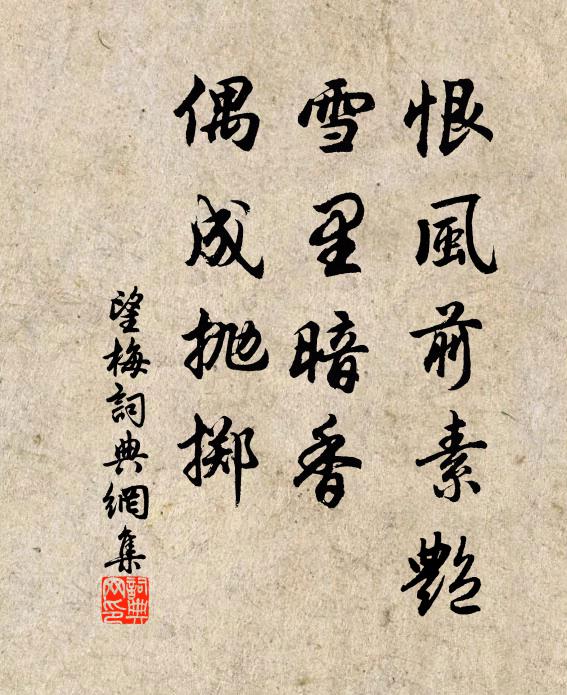 恨風前素艷
雪里暗香
偶成抛擲
望梅詞典網集
詞典
网印